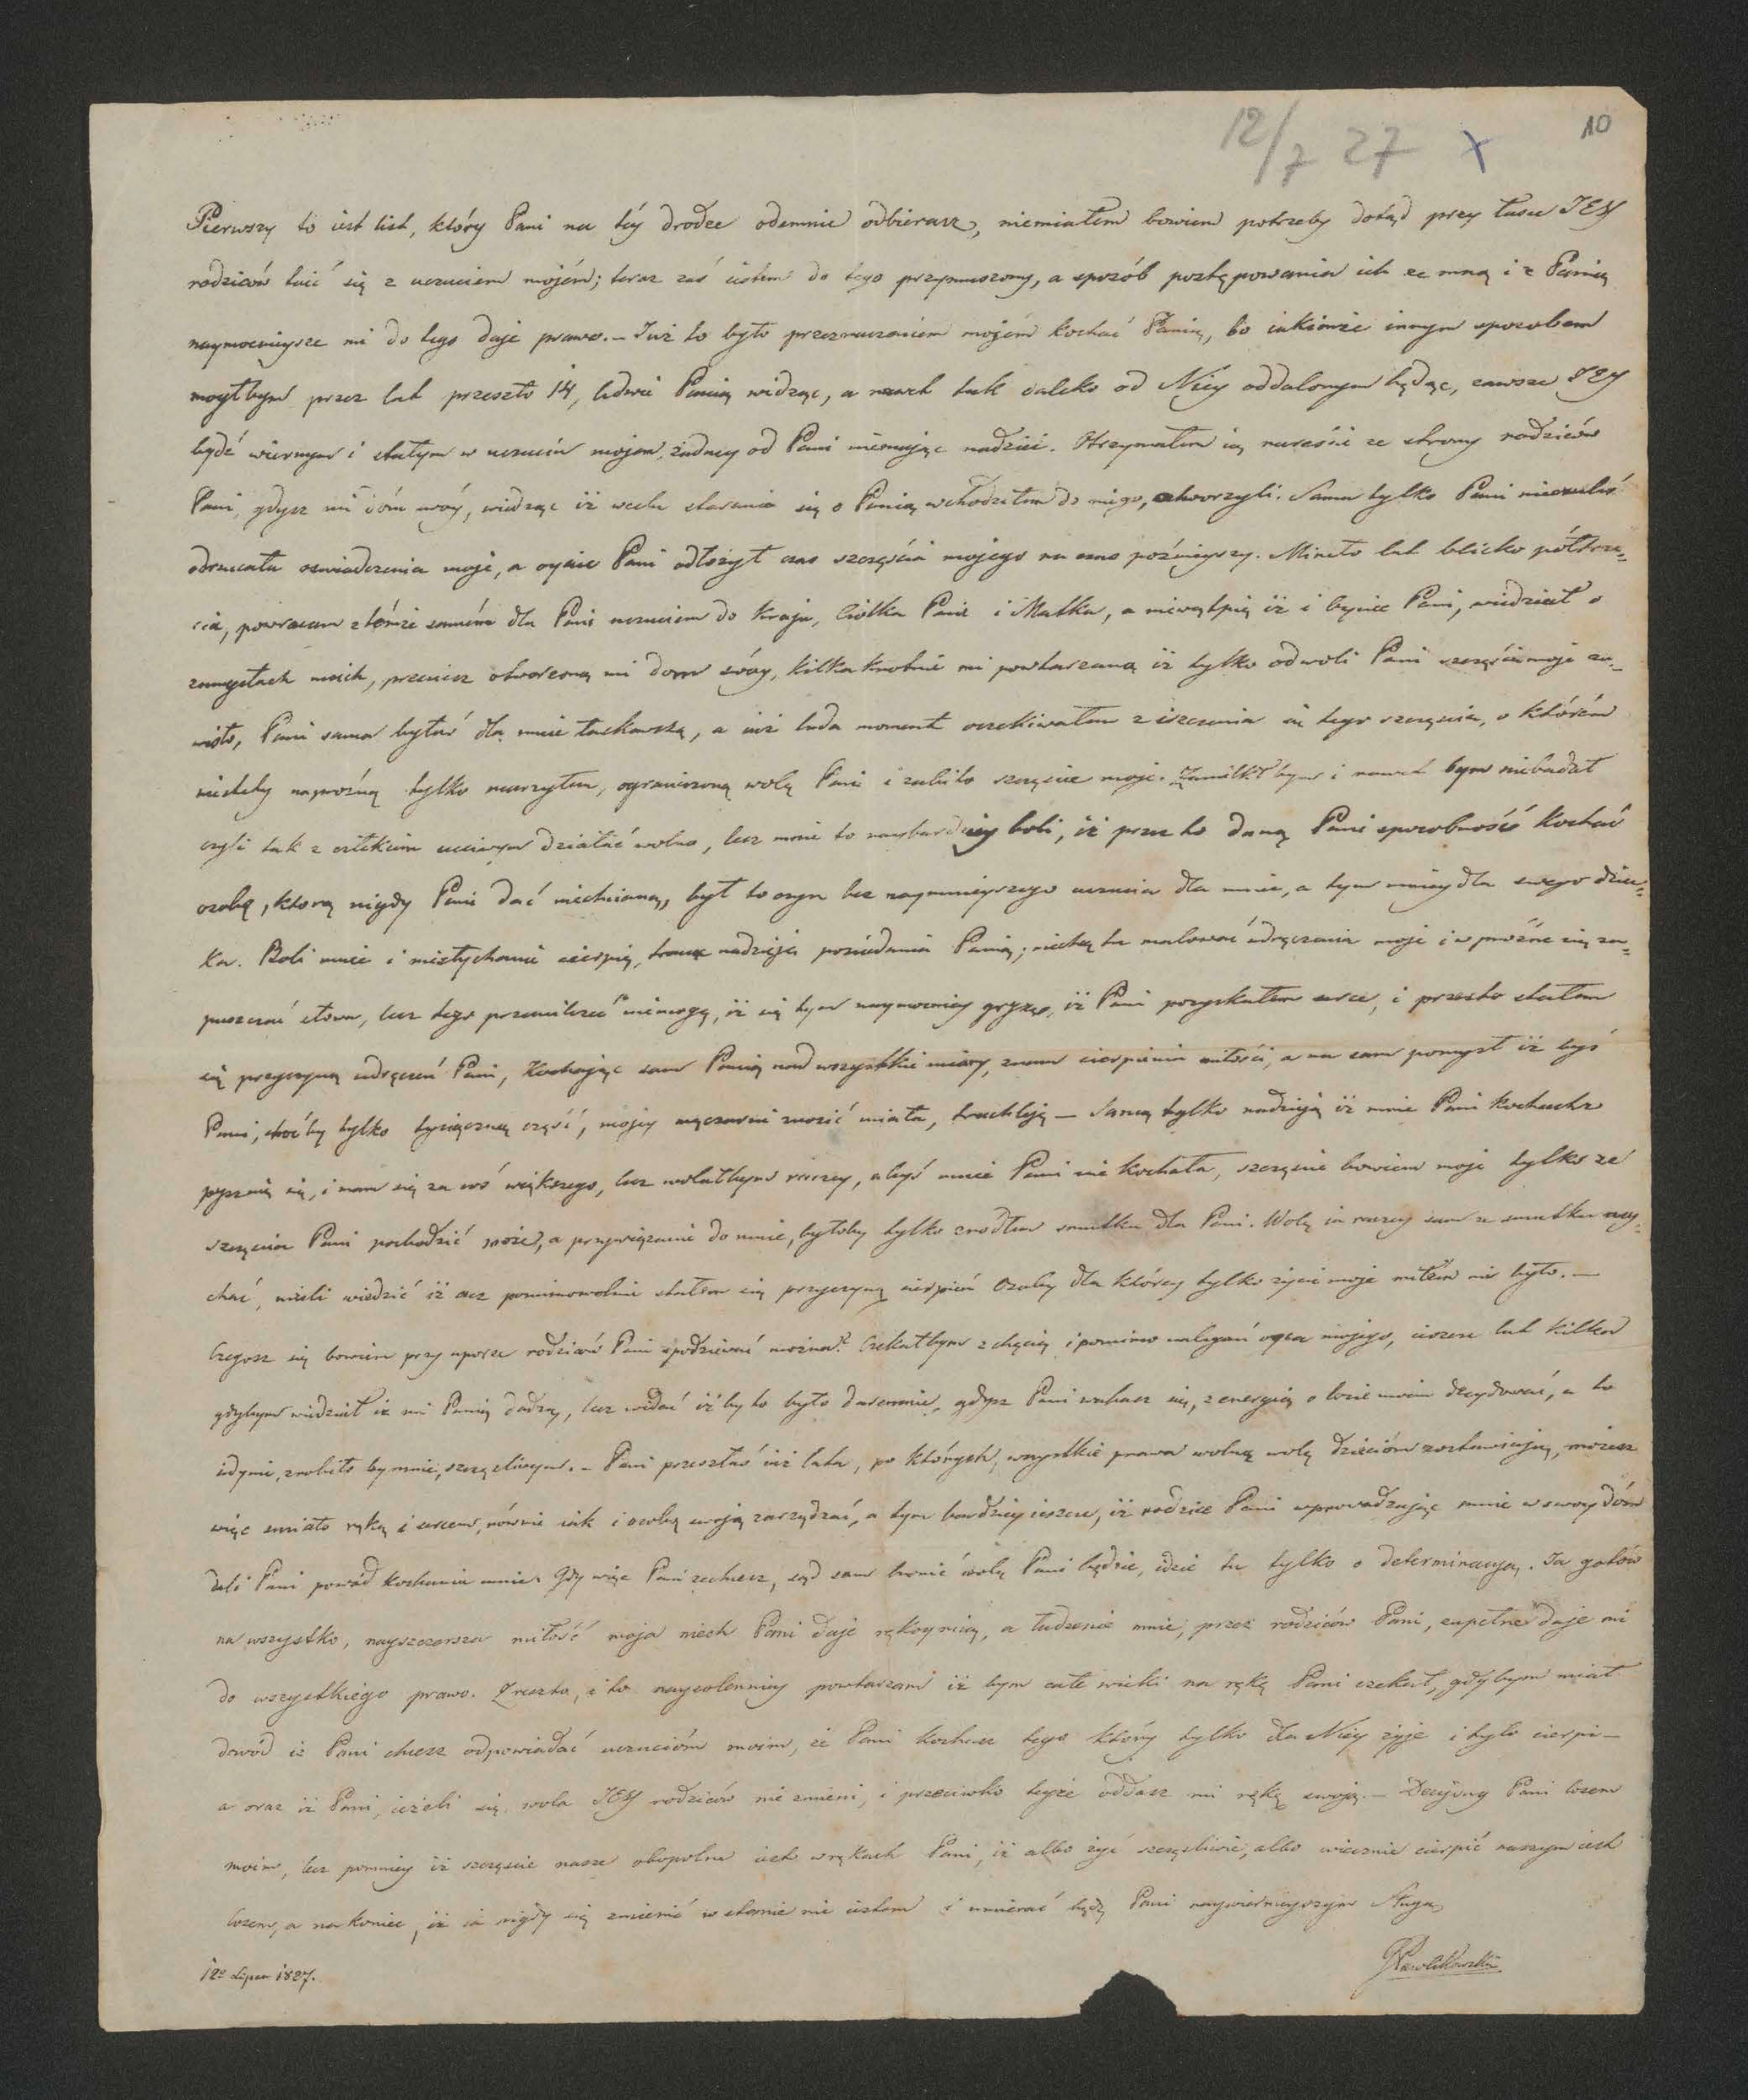 12/7 27 x
10
Pierwszy to iest list, który Pani na téy drodze odemnie odbierasz, niemiałem bowiem potrzeby dotąd przy łasce JEY
rodziców taić się z uczuciem mojém; teraz zaś iestem do tego przymuszony, a sposób postępowania ich ze mną i z Panią
naymocnieysze mi do tego daje prawo. – Już to było przeznaczeniem mojém kochać Panią, bo iakimże innym sposobem
mógłbym przez lat przeszło 14, ledwie Panią widząc, a nawet tak daleko od Niey oddalonym będąc, zawsze JEY
bydź wiernym i stałym w uczuciu mojem, żadney od Pani niemając nadziei. Otrzymałem ią nareście ze strony rodziców
Pani, gdysz mi dóm swóy, wiedząc iż w celu starania się o Panią wchodziłem do niego, otworzyli. Sama tylko Pani nieczuleś
odrzucała oświadczenia moje, a oyciec Pani odłożył czas szczęścia mojego na czas poźnieyszy. Mineło lat blizko półtrze=
cia, powracam z témże samém dla Pani uczuciem do kraju, Ciotka Pani i Matka, a niewątpię iż i Oyciec Pani, wiedział o
zamysłach moich, przeciesz otworzono mi dom swóy, kilkakrotnie mi powtarzano iż tylko od woli Pani szczęście moje za=
wisło, Pani sama byłaś dla mnie łaskawszą, a iuż lada moment oczekiwałem ziszczenia się tego szczęścia, o którém
niestety napróżno tylko marzyłem, ograniczono wolę Pani i zabito szczęscie moje. Zamilkł bym i nawet bym niebadał
czyli tak z człekiem uczciwym działać wolno, lecz mnie to naybardziey boli, iż przez to daną Pani sposobność kochać
osobę, którą nigdy Pani dać niechciano, był to czyn bez naymnieyszego uczucia dla mnie, a tym mniey dla swego dziec=
ka. Boli mnie i niesłychanie cierpię, tracąc nadzieję posiadania Panią; niechcę tu malować udręczenia moje i w próżne się za=
puszczać słowa, lecz tego przemilczeć niemogę, iż się tym naymocniey gryzę, iż Pani pozyskałem serce, i przesto stałem
się przyczyną udręczeń Pani, Kochając sam Panią nad wszystkie miary, znam cierpienia miłości, a na sam pomysł iż byś
Pani, choćby tylko tysiączną część, mojey męczarni znosić miała, truchleję – Samą tylko nadzieją iż mnie Pani kochasz
pysznię się, i mam się za coś większego, lecz wolałbym raczey, abyś mnie Pani nie kochała, szczęscie bowiem moje tylko ze
szczęscia Pani pochodzić może, a przywiązanie do mnie, byłoby tylko zrodłem smutku dla Pani. Wolę ia raczey sam ze smutku usy=
chać, niżeli wiedzić iż acz pomimowolnie stałem się przyczyną cierpień Osoby dla którey tylko życie moje miłém mi było. –
Czegosz się bowiem przy uporze rodziców Pani spodziewać można? Czekałbym z chęcią i pomimo nalegań oyca mojego, ieszcze lat kilka
gdybym wiedział iż mi Panią dadzą, lecz widać iż by to było daremnie, gdysz Pani wahasz się, z energią o losie moim decydować, a to
iedynie, zrobiło by mnie szczęśliwym. – Pani przeszłaś iuż lata, po których, wszystkie prawa wolną wolę dzieciom zostawiają, możesz
więc smiało ręką i sercem, równie iak i osobą swoją zarządzać, a tym bardziey ieszcze, iż rodzice Pani wprowadzając mnie w swoy dóm
dali Pani powód kochania mnie. Gdy więc Pani zechcesz, sąd sam bronić woli Pani będzie, idzie tu tylko o determinacyą. Ja gotów
na wszystko, nayszczersza miłość moja niech Pani daje rękoymią, a łudzenie mnie, przez rodziców Pani, zupełne daje mi
do wszystkiego prawo. Zresztą, i to nayuolenniey powtarzam iż bym całe wieki na rękę Pani czekał, gdybym miał
dowód iż Pani chcesz odpowiadać uczucióm moim, że Pani kochasz tego który tylko dla Niéy żyje i tyle cierpi –
a oraz iż Pani, ieżeli się wola JEY rodziców nie zmieni, i przeciwko teyże oddasz mi rękę swoją. – Decyduy Pani losem
moim, lecz pomniey iż szczęscie nasze obopolne iest w rękach Pani, iż albo żyć szczęsliwie, albo wiecznie cierpić naszym iest
losem, a nakoniec, iż ia nigdy się zmienić w stanie nie iestem i umierać będę Pani naywiernieyszym Sługą
GPawlikowski
12º Lipca 1827.